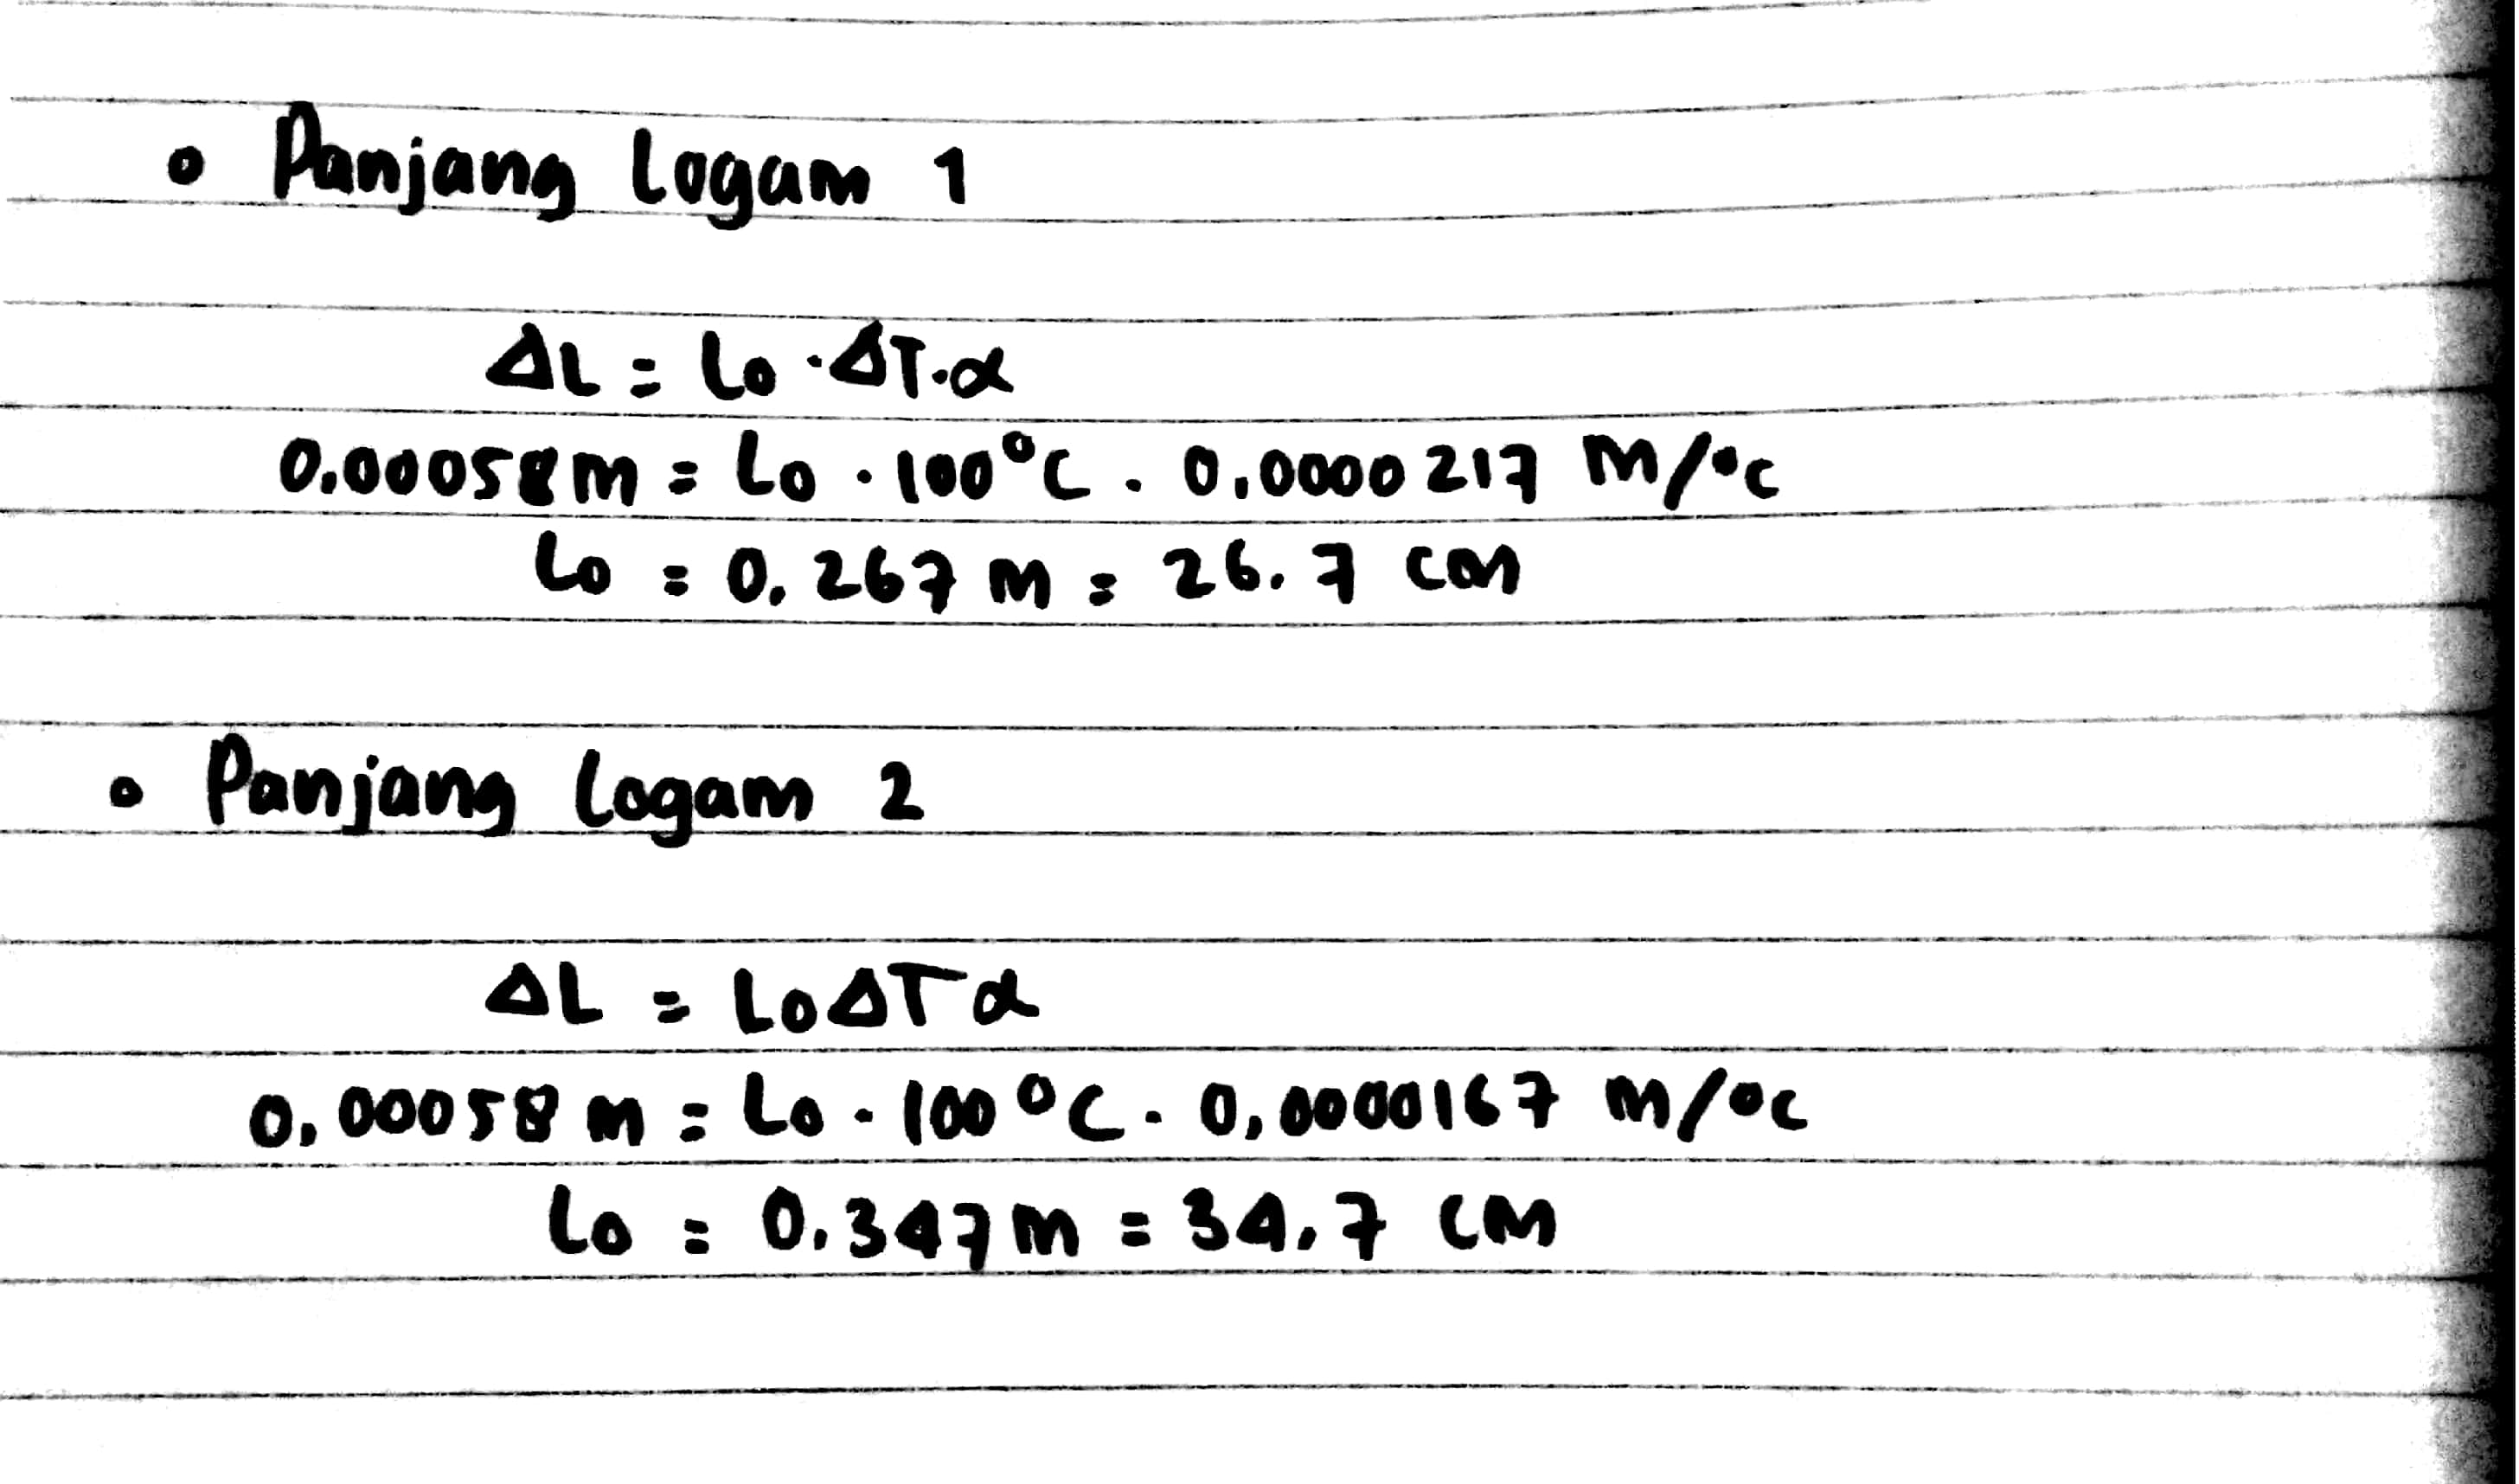 • Panjang logam 1
ΔL = Lo · ΔT · α
0.00058 m = Lo · 100°C . 0.0000217 m/°C
Lo = 0.267 m = 26.7 cm
• Panjang logam 2
ΔL = LoΔTα
0.00058 m = Lo · 100°C . 0,0000167 m/°C
Lo = 0.347 m = 34.7 cm